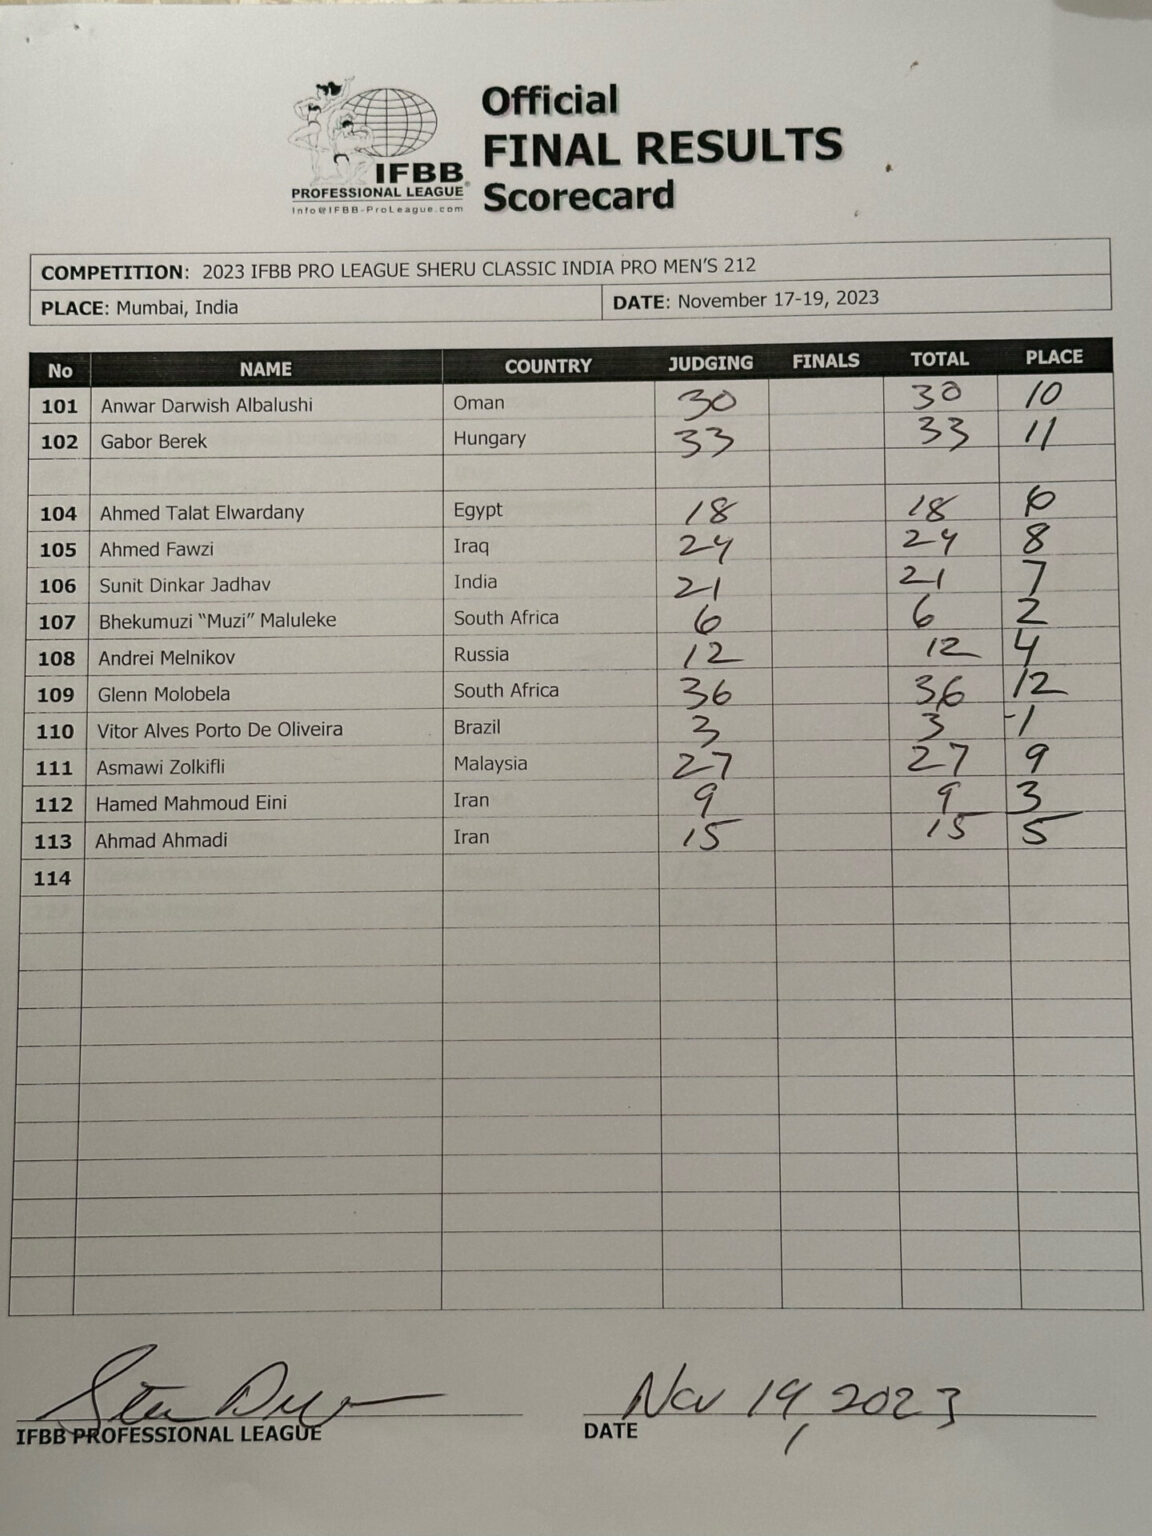 Official
FINAL RESULTS
Scorecard
IFBB
PROFESSIONAL LEAGUE®
Info@IFBB-ProLeague.com
COMPETITION: 2023 IFBB PRO LEAGUE SHERU CLASSIC INDIA PRO MEN'S 212
PLACE: Mumbai, India DATE: November 17-19, 2023
No NAME COUNTRY JUDGING FINALS TOTAL PLACE
101 Anwar Darwish Albalushi Oman 30 30 10
102 Gabor Berek Hungary 33 33 11
104 Ahmed Talat Elwardany Egypt 18 18 6
105 Ahmed Fawzi Iraq 24 24 8
106 Sunit Dinkar Jadhav India 21 21 7
107 Bhekumuzi “Muzi” Maluleke South Africa 6 6 2
108 Andrei Melnikov Russia 12 12 4
109 Glenn Molobela South Africa 36 36 12
110 Vitor Alves Porto De Oliveira Brazil 3 3 1
111 Asmawi Zolkifli Malaysia 27 27 9
112 Hamed Mahmoud Eini Iran 9 9 3
113 Ahmad Ahmadi Iran 15 15 5
114
Nov 19, 2023
IFBB PROFESSIONAL LEAGUE DATE